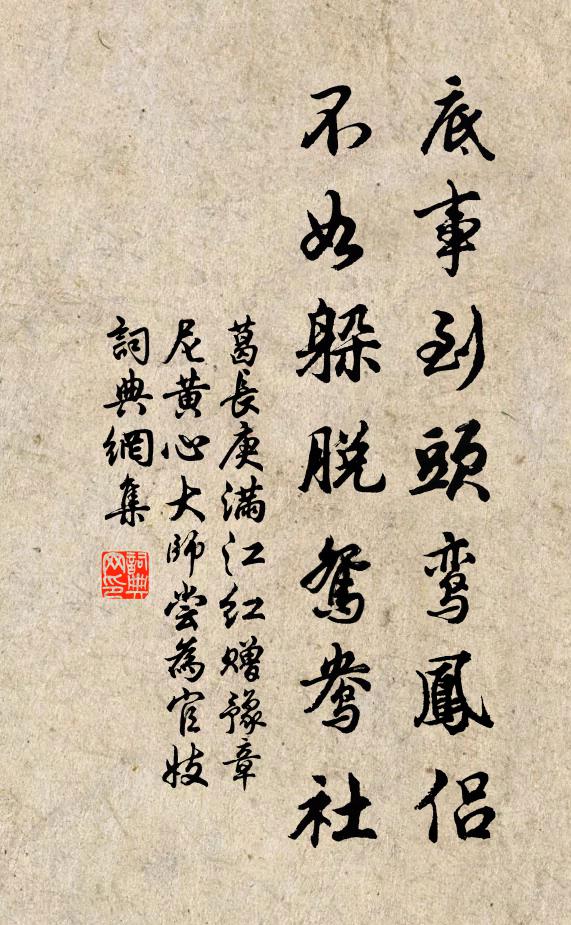 底事到頭鸾鳳侣
不如躲脱鴛鸯社
葛長庚满江红赠豫章
尼黄心大師尝為官妓
詞典網集
詞典
网印